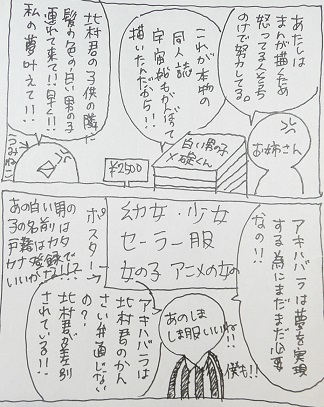 あたしは
まんが描くため
怒ってる人とうち
のけて努力してる。
お姉さん
これが本物の
同人誌
宇宙船もがんばって
描いたんだから!!
白い男の子
×磯くん
¥2500
北村君の子供の隣に
髪の色の白い男の子
連れて来て!!早く!!
私の夢叶えて!!
うみねこ
アキハバラは夢を実現
する為にまだまだ必要
なの!!
幼女・少女
セーラー服
女の子 アニメの女の
ポスター→
あのしま
しま服いいね!!
僕も!!
アキハバラは
北村君のかん
さい弁通じない
の?
北村君が差別
されている!!